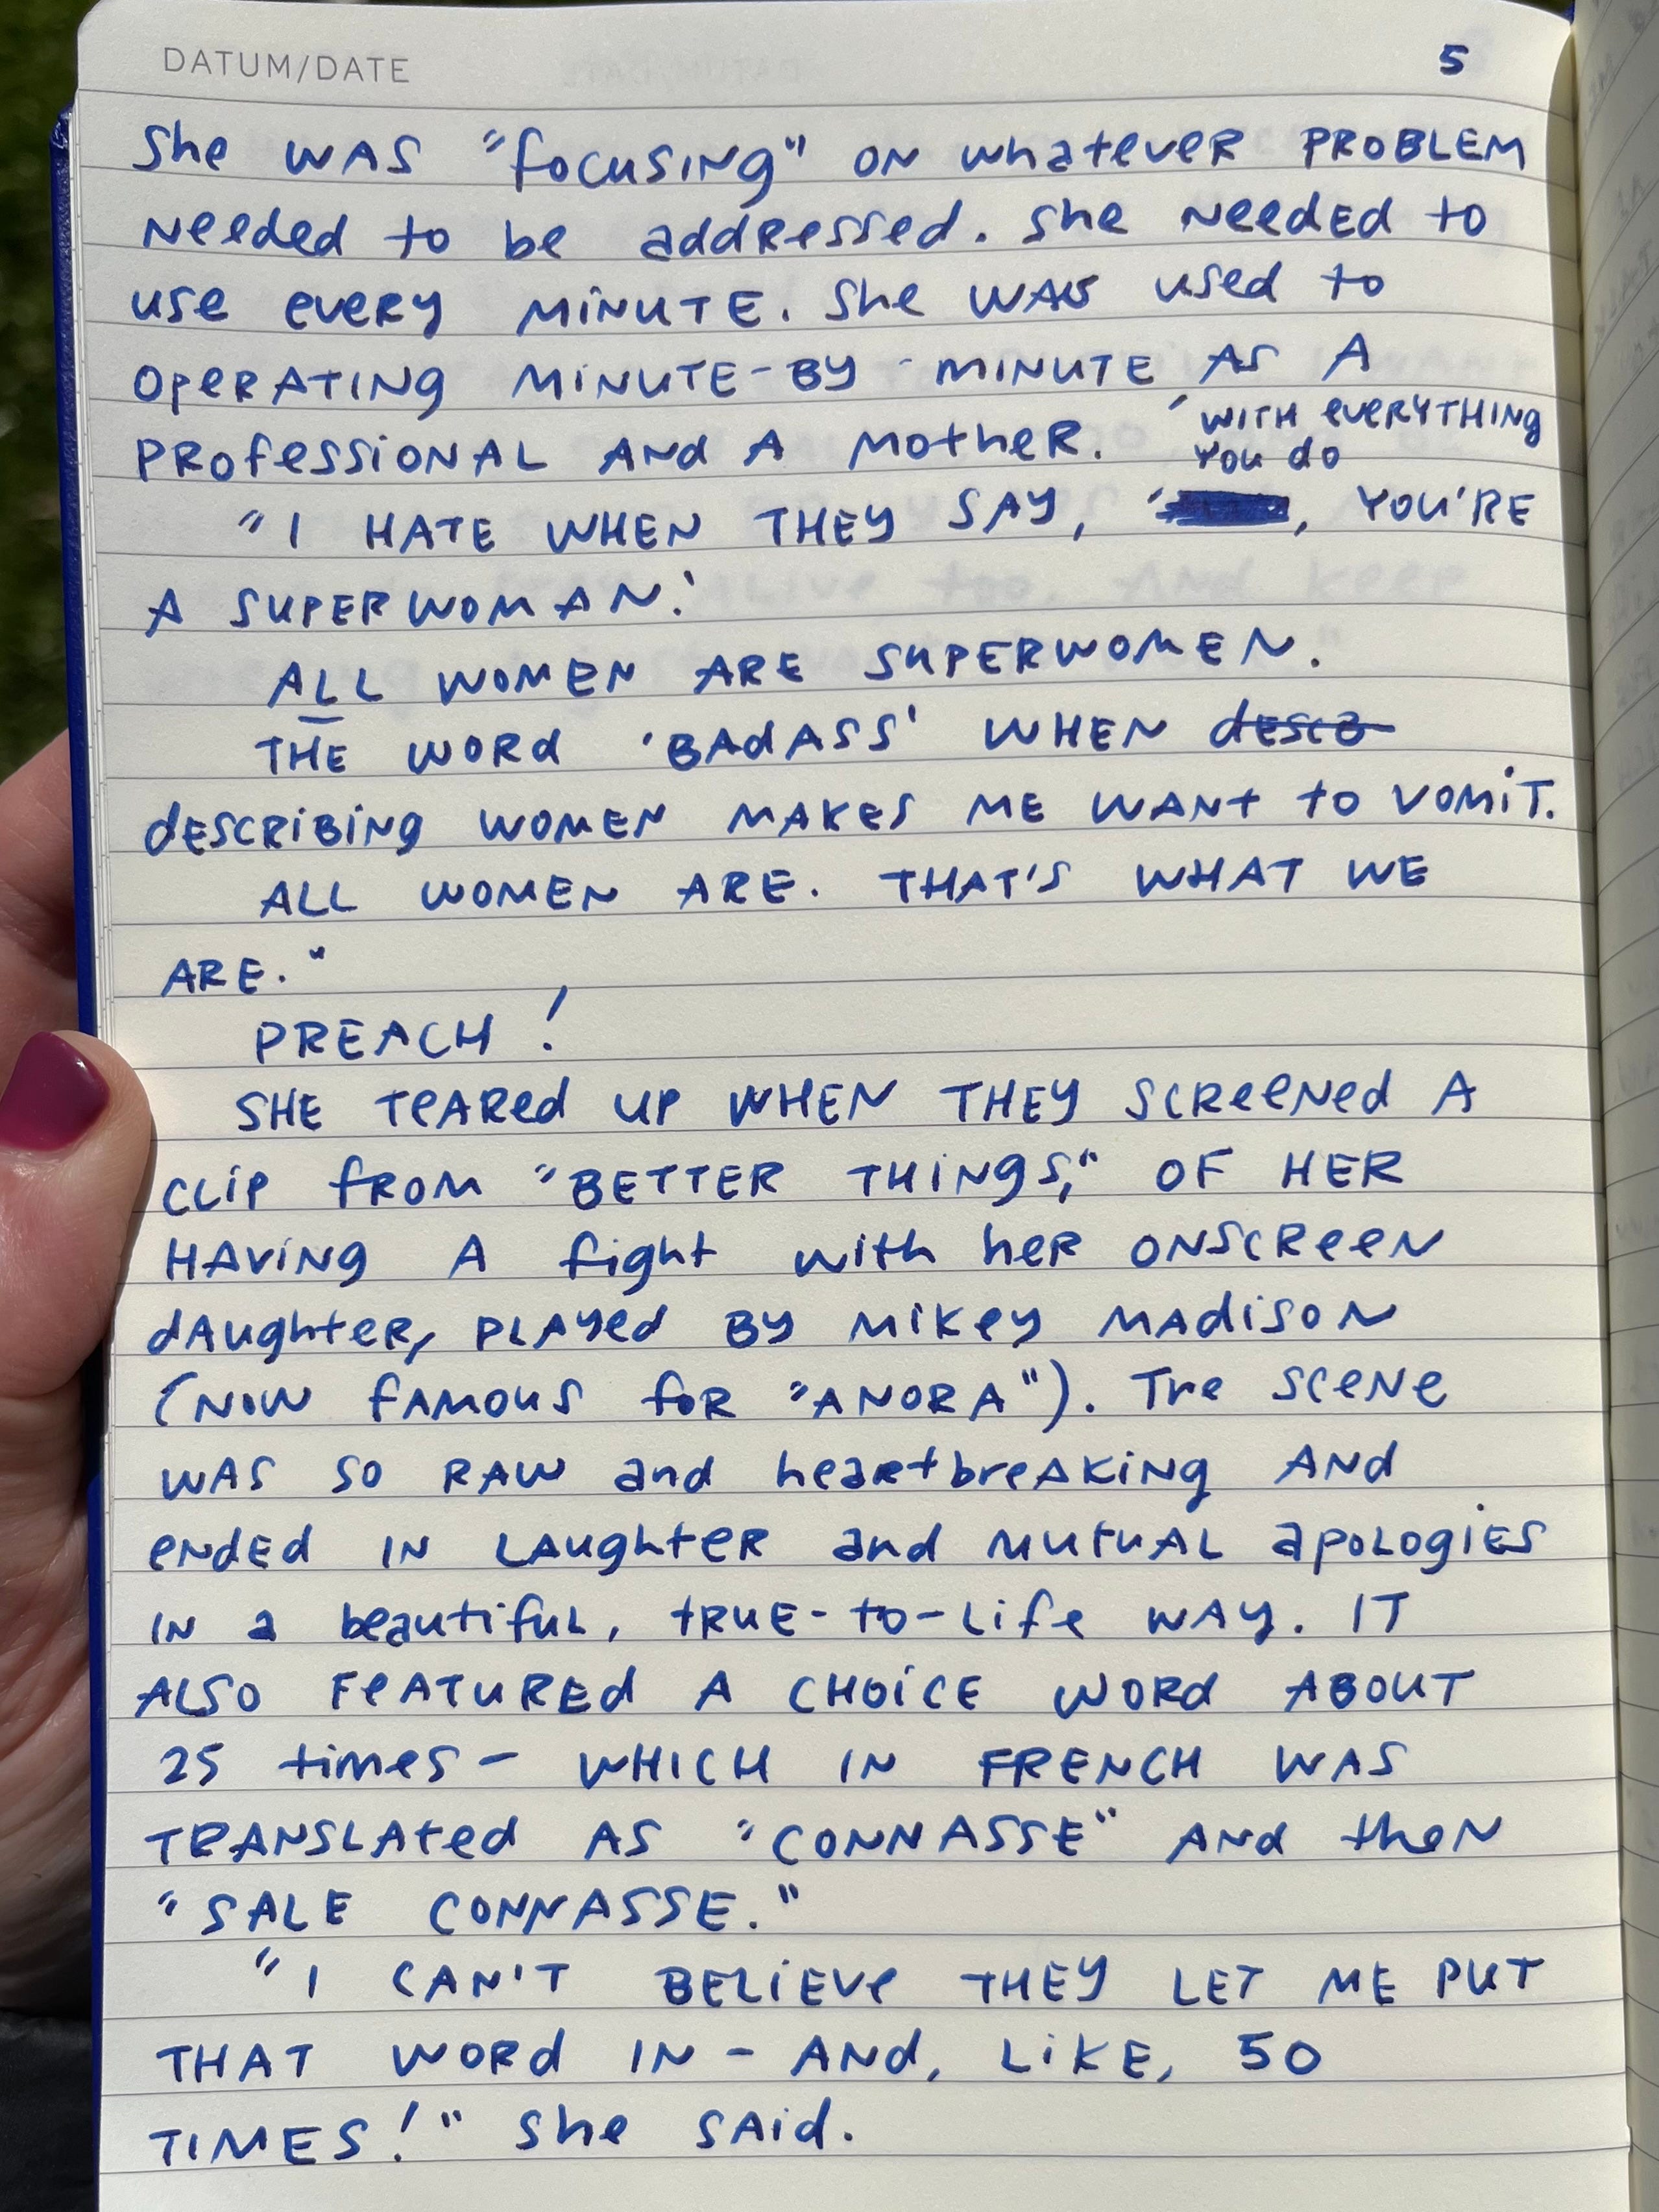 DATUM/DATE
5
She WAS "focusing" on whatever PROBLEM
needed to be addressed. She needed to
use every MINUTE. She WAS used to
OPERATING MINUTE-BY-MINUTE AS A
PROfessiONAL ANd A MotheR.
'WITH eveRYTHINg
You do
"I HATE WHEN THEY SAY, ', YOU'RE
A SUPERWOMAN.'
ALL WOMEN ARE SUPERWOMEN.
THE WORd 'BAdASS' WHEN descb
dESCRiBiNg WOMEN MAKES ME WANt to VOMiT.
ALL WOMEN ARE. THAT'S WHAT WE
ARE."
PREACH!
SHE TeARed UP WHEN THEY SCReeNed A
CLiP fROM "BETTER THiNgS," OF HER
HAViNg A fight with heR ONSCReeN
dAughteR, PLAYed BY MiKey MAdiSON
(NOW fAMOUS foR "ANORA"). The SCeNe
WAS SO RAW and heartbreAKiNg ANd
eNdEd IN LAughteR and MutuAL apoLogiES
IN a beautifuL, tRUE-to-Life WAY. IT
ALSO FeATUREd A CHOiCE WORd ABOUT
25 times - WHICH IN FRENCH WAS
TRANSLAted AS "CONNASSE" ANd theN
"SALE CONNASSE."
"I CAN'T BELiEVe THEY LET ME PUT
THAT WORd IN - ANd, LiKE, 50
TIMES!" She SAid.